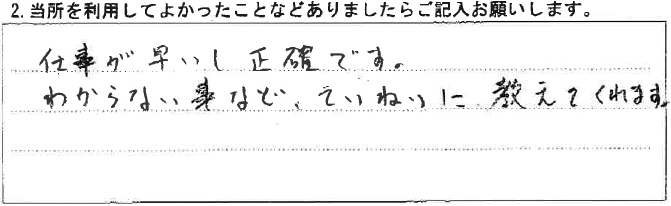 2.当所を利用してよかったことなどありましたらご記入お願いします。
仕事が早いし正確です。
わからない事など、ていねいに教えてくれます。